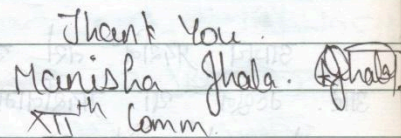 Thank You.
Manisha Jhala. Jhala.
XIIth Comm